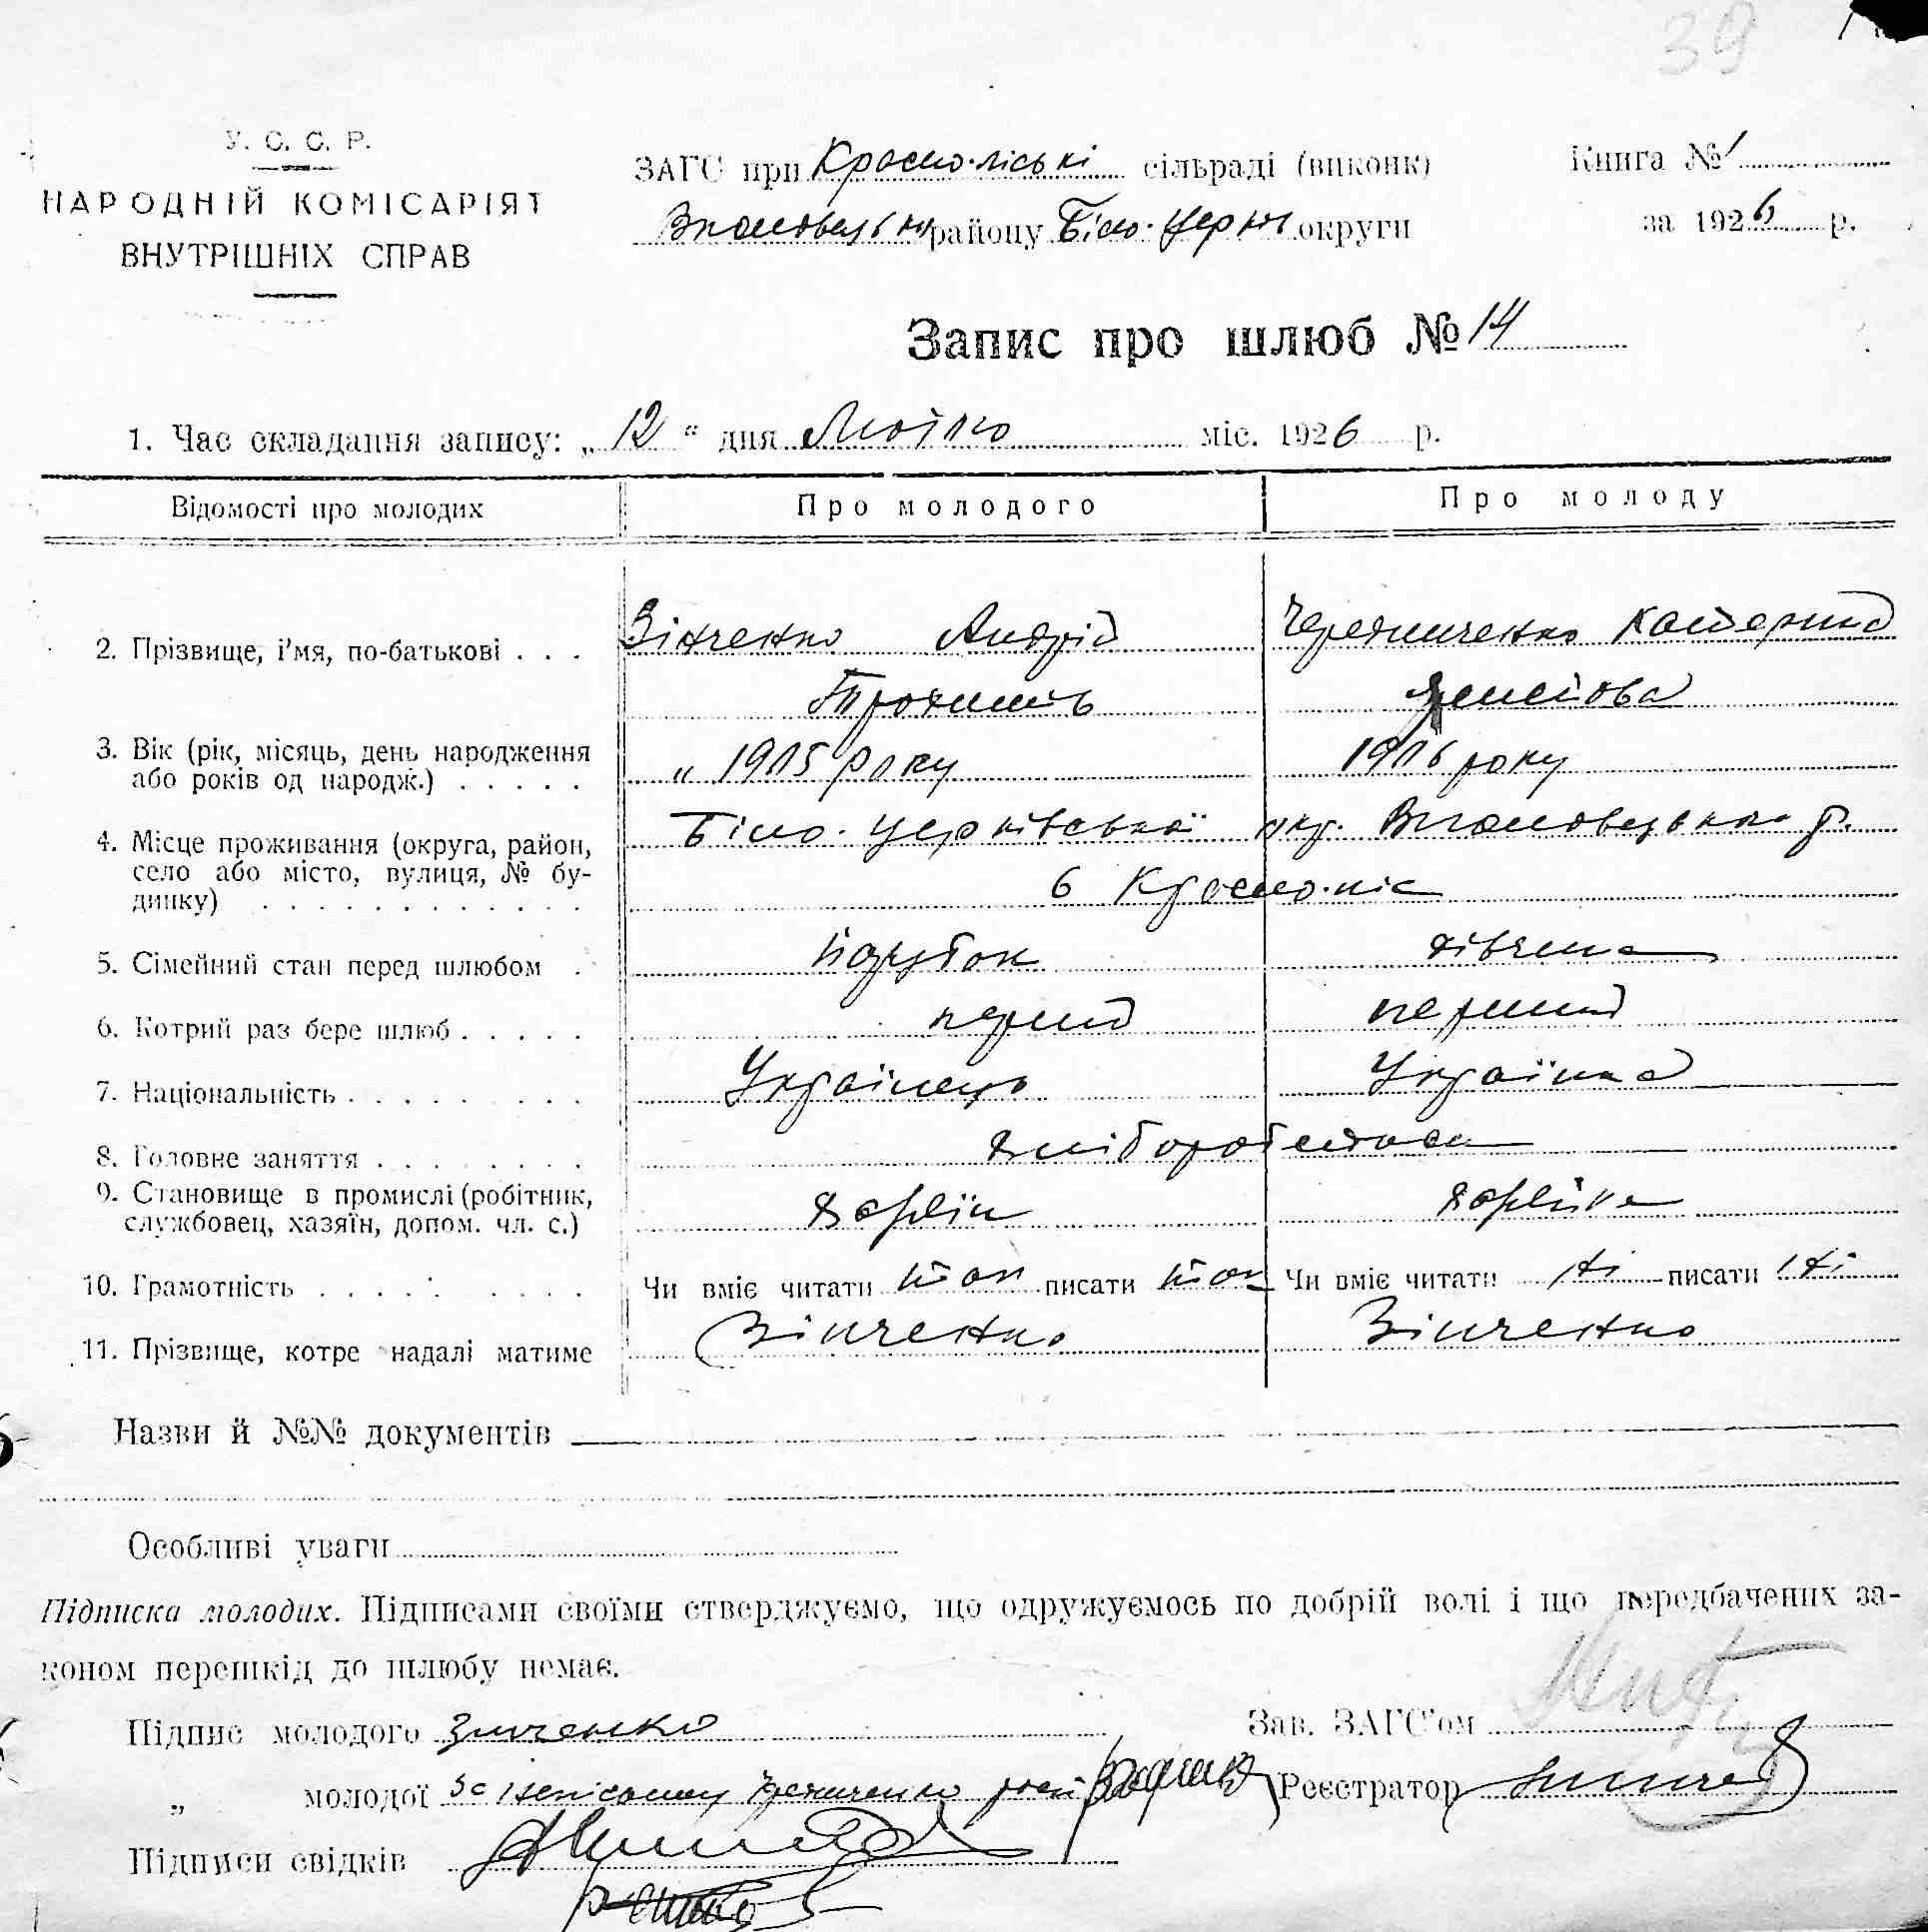 39
У. С. С. Р.
НАРОДНІЙ КОМІСАРІЯТ
ВНУТРІШНІХ СПРАВ
ЗАГС при Красно-ліські сільраді (виконк)
району Біло-Церків округи
Книга № 1
за 1926 р.
Запис про шлюб № 14
1. Час складання запису: „ 12 “ дня Лютого міс. 1926 р.
Відомості про молодих
Про молодого
Про молоду
2. Прізвище, і’мя, по-батькові . . .
Зінченко Андрій
Чередниченко Катерина
3. Вік (рік, місяць, день народження
або років од народж.) . . . . .
„ 1905 року
1906 року
4. Місце проживання (округа, район,
село або місто, вулиця, № бу-
динку) . . . . . . . . . . . .
Біло-Церківської окр. р.
с Красно-ліс
5. Сімейний стан перед шлюбом .
парубок
дівчина
6. Котрий раз бере шлюб . . . . .
перший
перший
7. Національність . . . . . . . .
Українець
Українка
8. Головне заняття . . . . . . . .
хліборобство
9. Становище в промислі (робітник,
службовец, хазяїн, допом. чл. с.)
хазяїн
10. Грамотність . . . . . . . . .
Чи вміє читати так писати так
Чи вміє читати ні писати ні
11. Прізвище, котре надалі матиме
Зінченко
Зінченко
Назви й №№ документів
Особливі уваги
Підписка молодих. Підписами своїми стверджуємо, що одружуємось по добрій волі і що передбачених за-
коном перешкід до шлюбу немає.
Підпис молодого Зинченко
Зав. ЗАГС’ом
„ молодої за неписьмену
Реєстратор
Підписи свідків